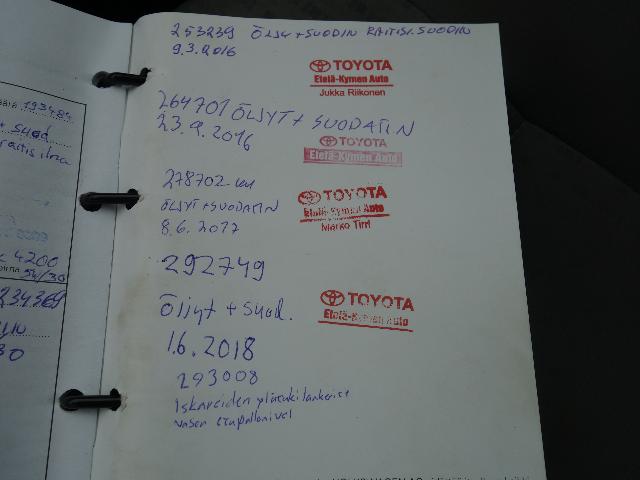 253239 ÖLJY + SUODIN RAITISI.SUODIN
9.3.2016
TOYOTA
Etelä-Kymen Auto
Jukka Riikonen
264701 ÖLJYT + SUODATIN
23.9.2016
TOYOTA
Etelä-Kymen Auto
278702 km
ÖLJYT+SUODATIN
8.6.2017
TOYOTA
Etelä-Kymen Auto
Marko Tirri
292749
Öljyt + suod.
1.6.2018
TOYOTA
Etelä-Kymen Auto
293008
Iskareiden ylätukilaakerit
vasen
193484
+ suod
raitis ilma
4200
5W/30
234369
30